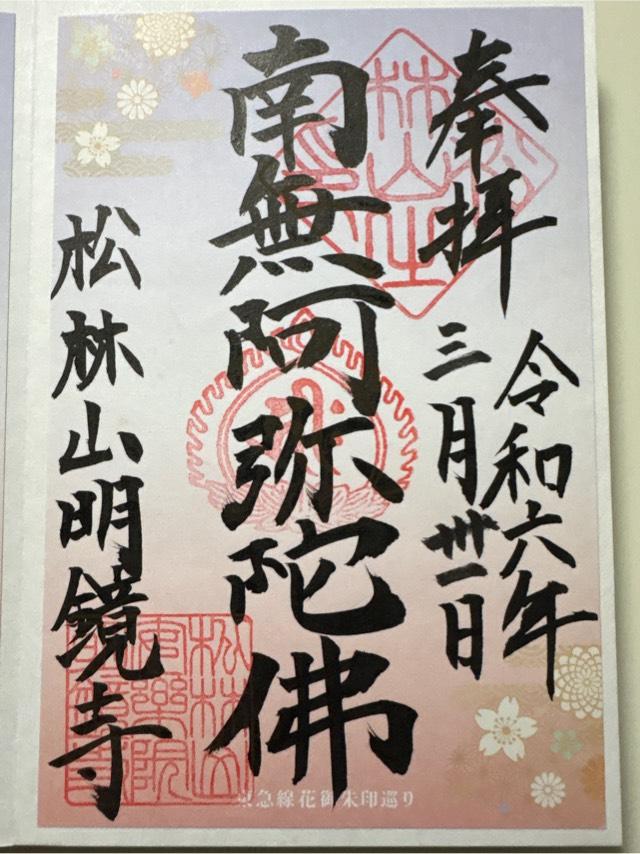 奉拝
令和六年
三月卅一日
南無阿弥陀佛
松林山明鏡寺
京急線花御朱印巡り